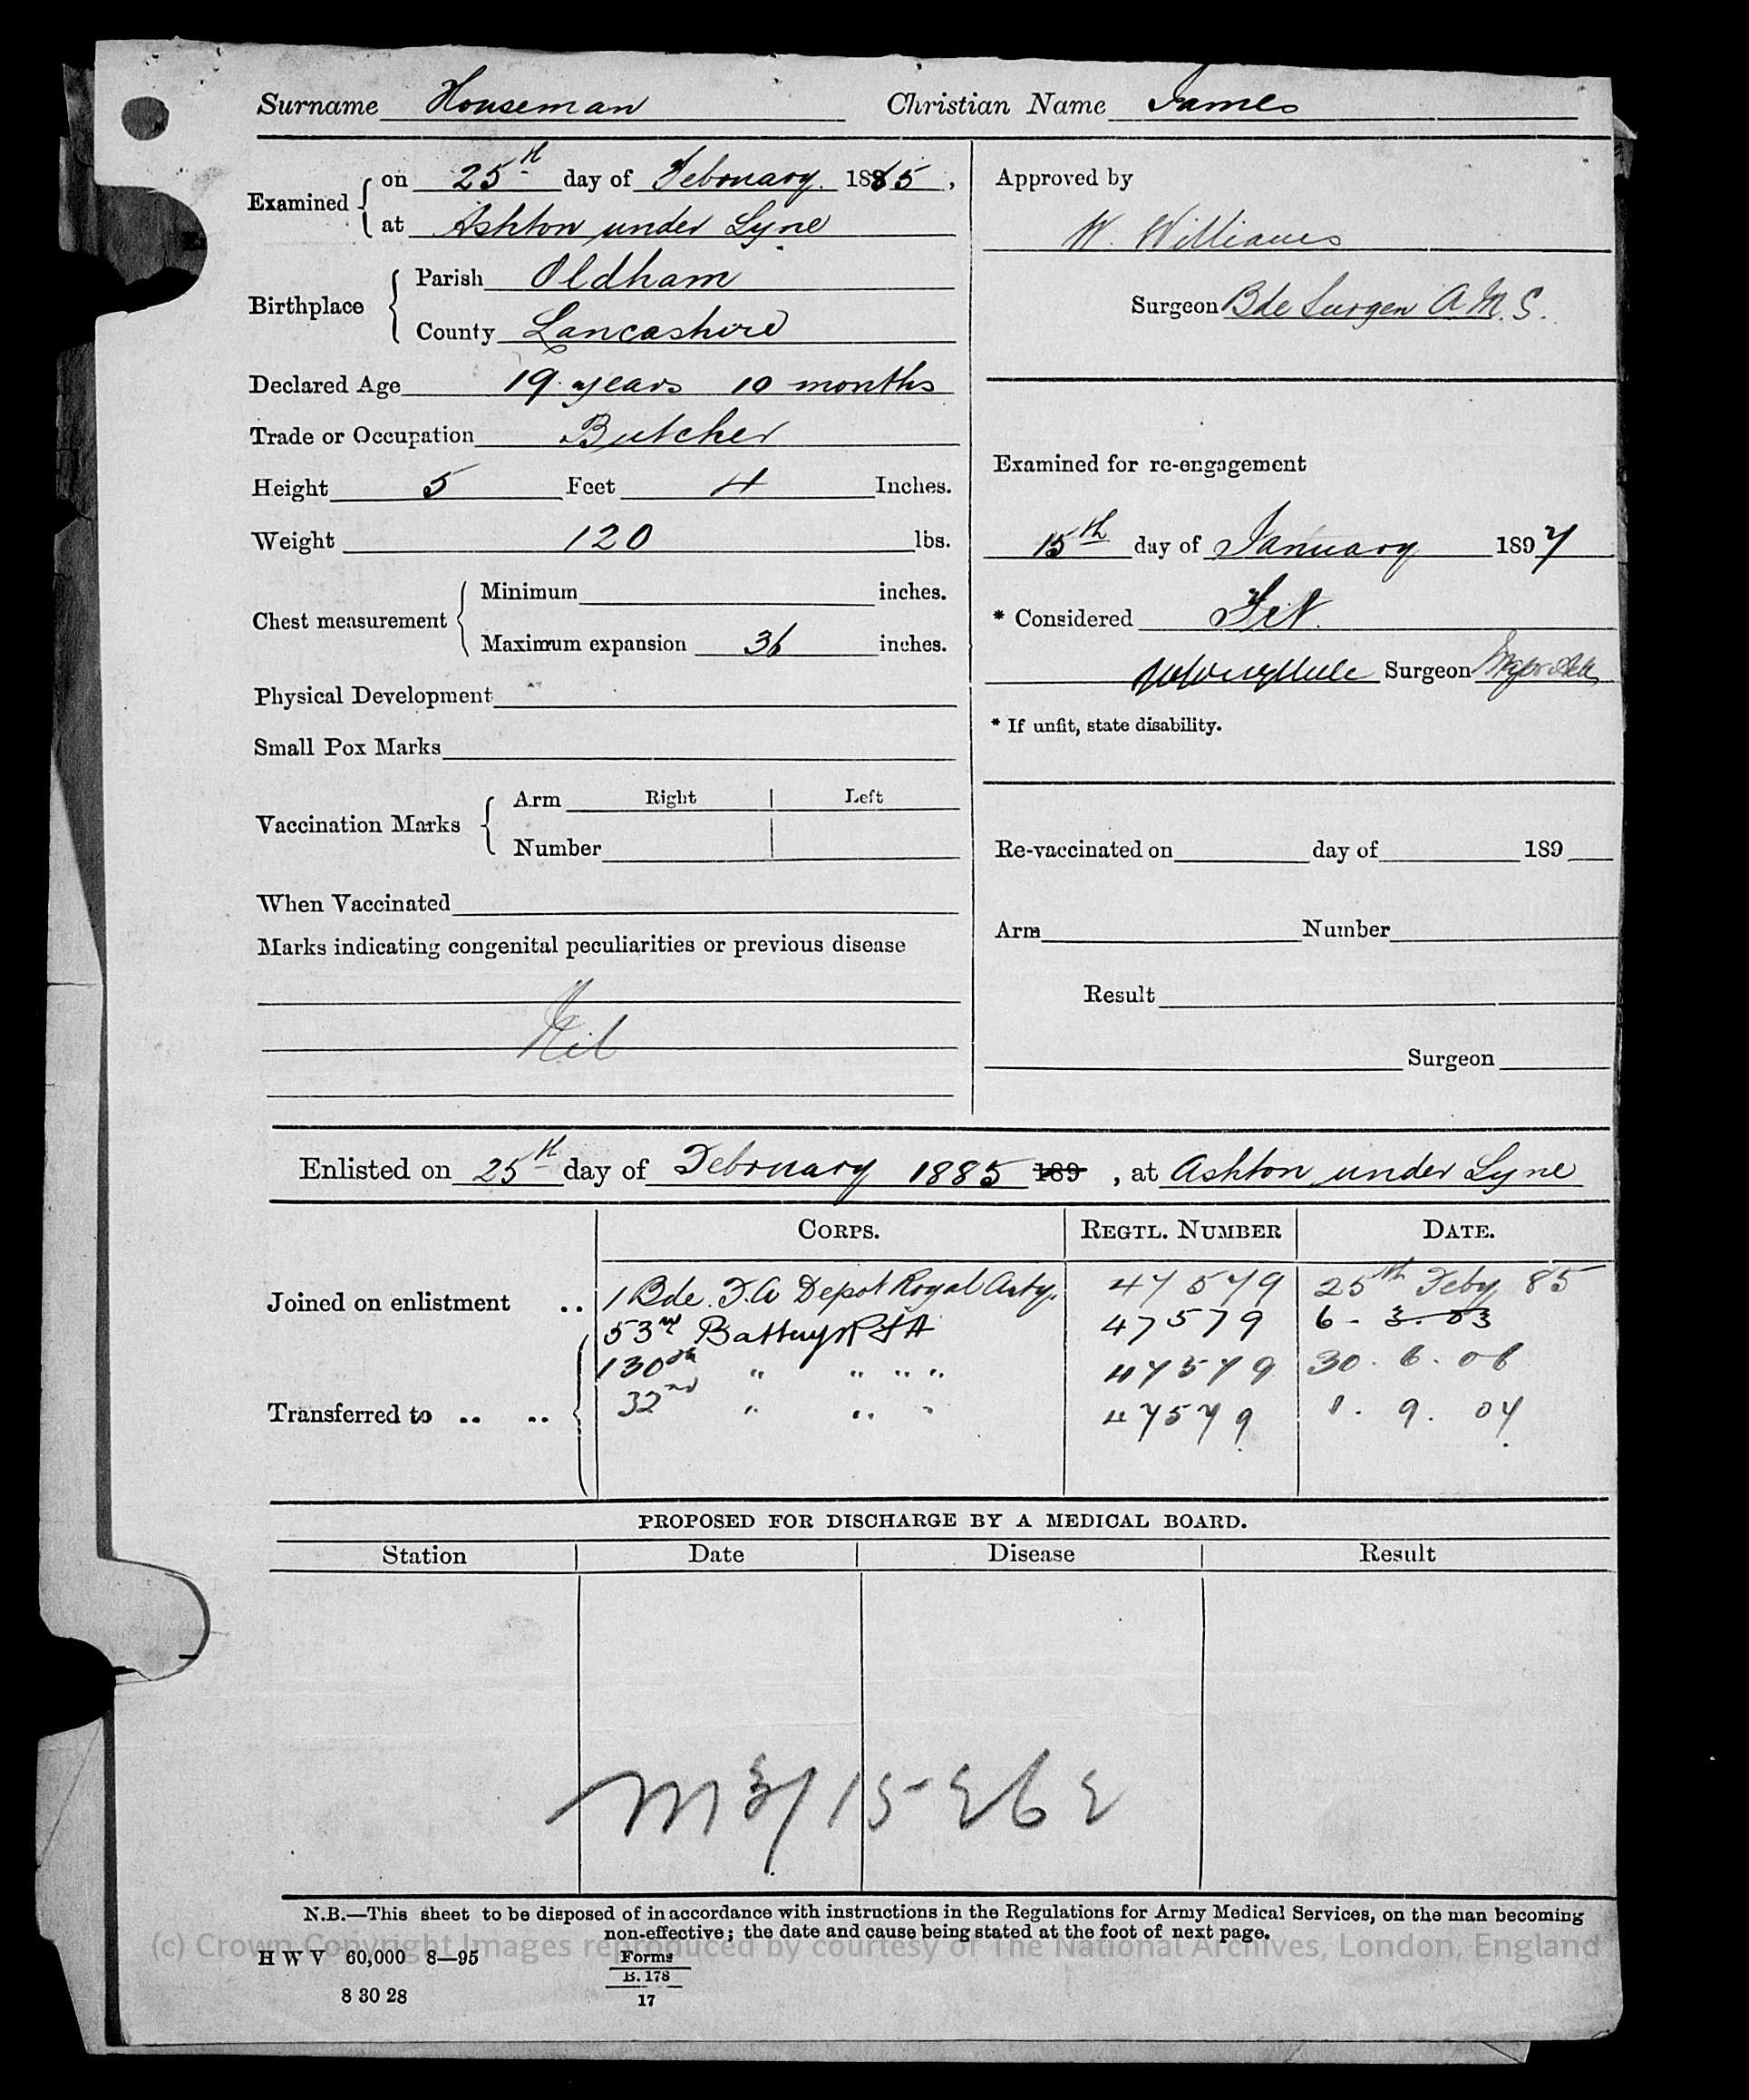 Surname Houseman Christian Name James
Examined on 25th day of February 1885,
at Ashton under Lyne
Birthplace Parish Oldham
County Lancashire
Declared Age 19 years 10 months
Trade or Occupation Butcher
Height 5 Feet 4 Inches.
Weight 120 lbs.
Chest measurement Minimum inches.
Maximum expansion 36 inches.
Physical Development
Small Pox Marks
Vaccination Marks Arm Right Left
Number
When Vaccinated
Marks indicating congenital peculiarities or previous disease
Nil
Approved by
W. Williams
Surgeon Bde Surgen A.M.S.
Examined for re-engagement
15th day of January 1897
* Considered Fit.
Surgeon
* If unfit, state disability.
Re-vaccinated on day of 189
Arm Number
Result
Surgeon
Enlisted on 25th day of February 1885 189 , at Ashton under Lyne
CORPS. REGTL. NUMBER DATE.
Joined on enlistment .. 1 Bde. F.A Depot Royal Arty. 47579 25th Feby 85
53rd Battery RFA 47579 6 - 3. 03
130th " " " " 47579 30. 6. 06
Transferred to .. .. 32nd " " " 47579 1. 9. 07
PROPOSED FOR DISCHARGE BY A MEDICAL BOARD.
Station Date Disease Result
N.B.—This sheet to be disposed of in accordance with instructions in the Regulations for Army Medical Services, on the man becoming
non-effective; the date and cause being stated at the foot of next page.
(c) Crown Copyright Images reproduced by courtesy of The National Archives, London, England
H W V 60,000 8—95
8 30 28
Forms
B. 178
17